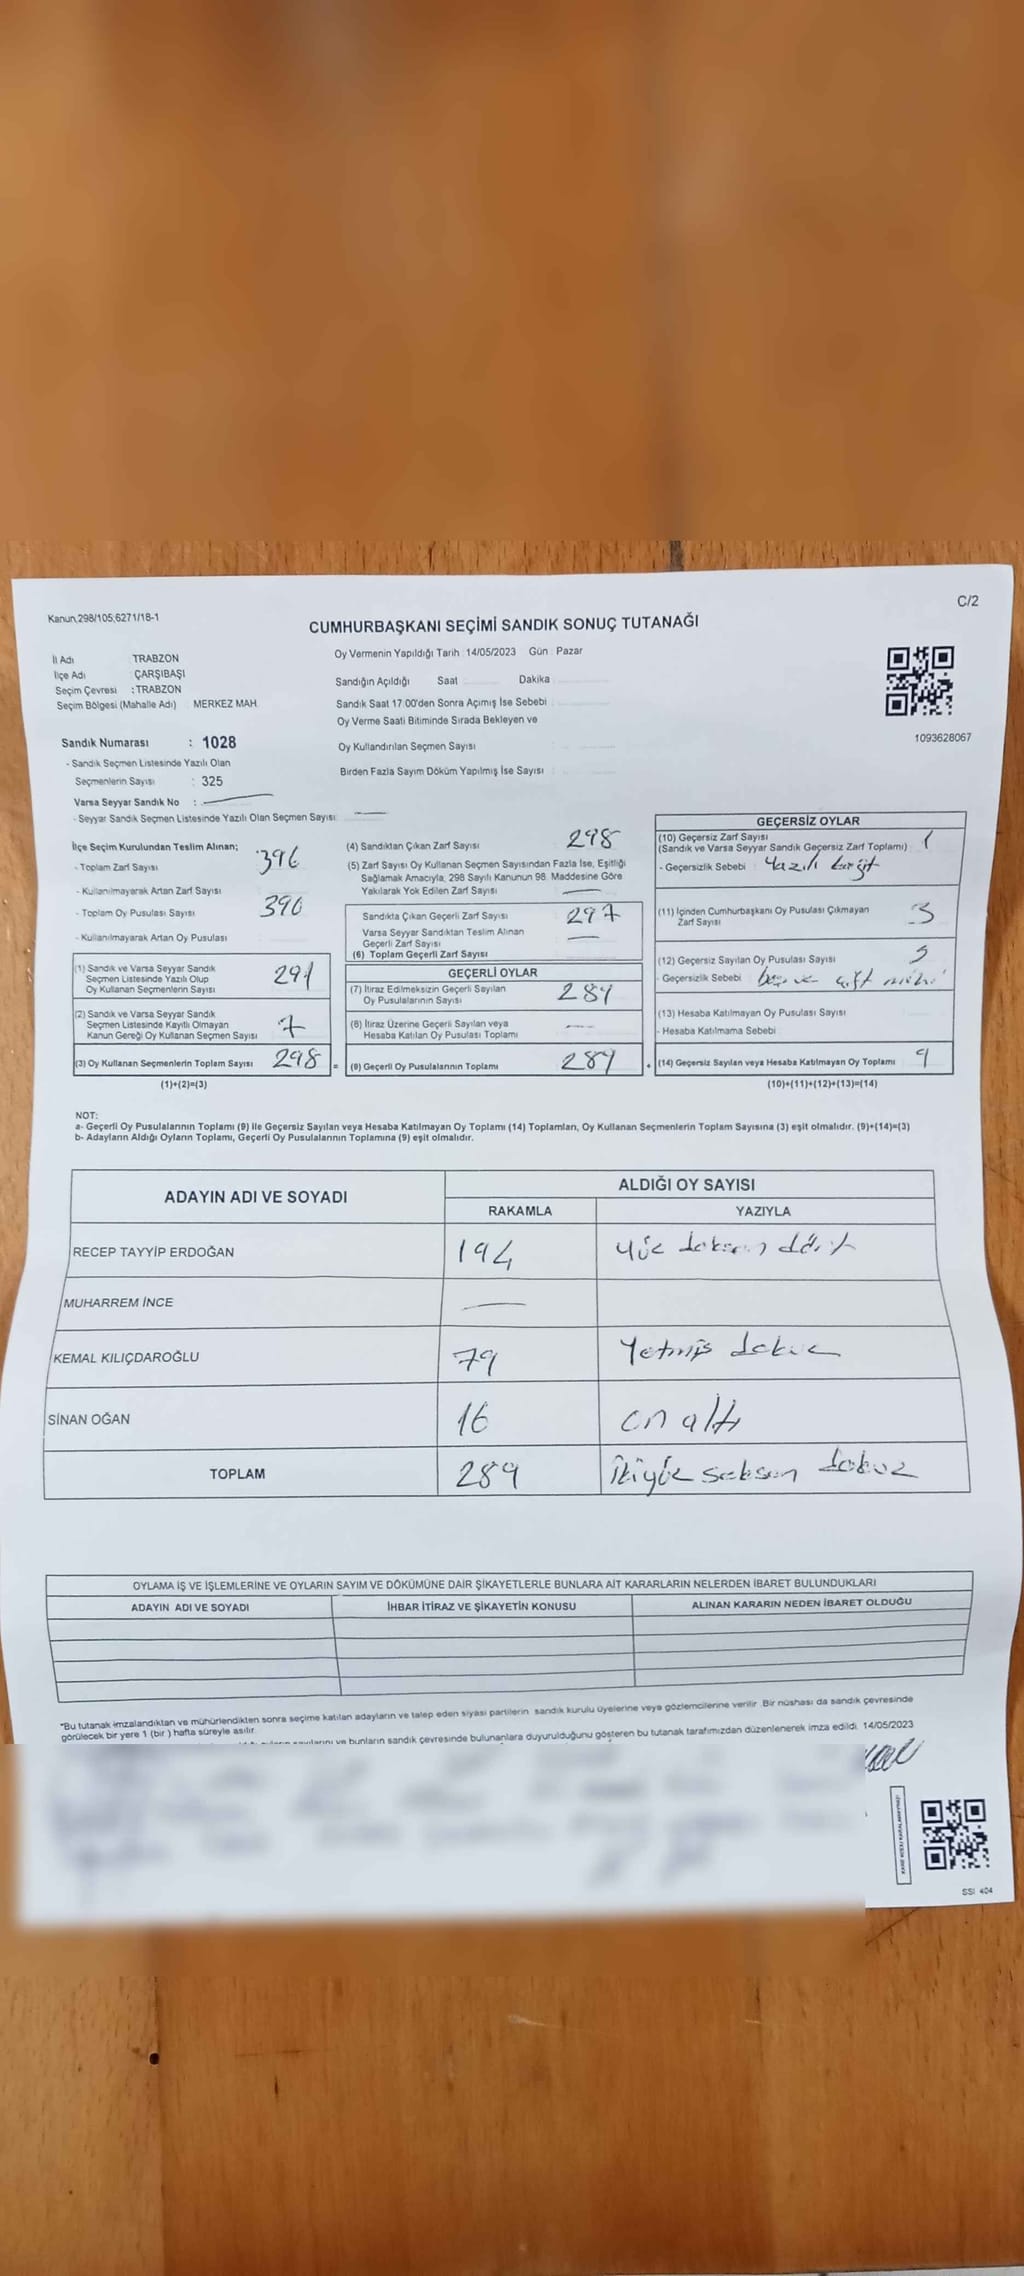 Kanun,298/105,6271/18-1
C/2
CUMHURBAŞKANI SEÇİMİ SANDIK SONUÇ TUTANAĞI
Oy Vermenin Yapıldığı Tarih 14/05/2023 Gün Pazar
İl Adı TRABZON
İlçe Adı ÇARŞIBAŞI
Seçim Çevresi : TRABZON
Seçim Bölgesi (Mahalle Adı) MERKEZ MAH.
Sandığın Açıldığı Saat Dakika
Sandık Saat 17:00'den Sonra Açımış İse Sebebi
Oy Verme Saati Bitiminde Sırada Bekleyen ve
Oy Kullandırılan Seçmen Sayısı
Birden Fazla Sayım Döküm Yapılmış İse Sayısı
1093628067
Sandık Numarası : 1028
- Sandık Seçmen Listesinde Yazılı Olan
Seçmenlerin Sayısı : 325
Varsa Seyyar Sandık No : —
- Seyyar Sandık Seçmen Listesinde Yazılı Olan Seçmen Sayısı —
İlçe Seçim Kurulundan Teslim Alınan;
- Toplam Zarf Sayısı 396
- Kullanılmayarak Artan Zarf Sayısı
- Toplam Oy Pusulası Sayısı 390
- Kullanılmayarak Artan Oy Pusulası
(1) Sandık ve Varsa Seyyar Sandık
Seçmen Listesinde Yazılı Olup
Oy Kullanan Seçmenlerin Sayısı 291
(2) Sandık ve Varsa Seyyar Sandık
Seçmen Listesinde Kayıtlı Olmayan
Kanun Gereği Oy Kullanan Seçmen Sayısı 7
(3) Oy Kullanan Seçmenlerin Toplam Sayısı 298 =
(1)+(2)=(3)
(4) Sandıktan Çıkan Zarf Sayısı 298
(5) Zarf Sayısı Oy Kullanan Seçmen Sayısından Fazla İse, Eşitliği
Sağlamak Amacıyla, 298 Sayılı Kanunun 98. Maddesine Göre
Yakılarak Yok Edilen Zarf Sayısı —
Sandıkta Çıkan Geçerli Zarf Sayısı 297
Varsa Seyyar Sandıktan Teslim Alınan
Geçerli Zarf Sayısı —
(6) Toplam Geçerli Zarf Sayısı
GEÇERLİ OYLAR
(7) İtiraz Edilmeksizin Geçerli Sayılan
Oy Pusulalarının Sayısı 289
(8) İtiraz Üzerine Geçerli Sayılan veya
Hesaba Katılan Oy Pusulası Toplamı —
(9) Geçerli Oy Pusulalarının Toplamı 289 +
GEÇERSİZ OYLAR
(10) Geçersiz Zarf Sayısı
(Sandık ve Varsa Seyyar Sandık Geçersiz Zarf Toplamı) 1
- Geçersizlik Sebebi : Yazılı
(11) İçinden Cumhurbaşkanı Oy Pusulası Çıkmayan
Zarf Sayısı 3
(12) Geçersiz Sayılan Oy Pusulası Sayısı 5
- Geçersizlik Sebebi : boş ve çift
(13) Hesaba Katılmayan Oy Pusulası Sayısı
- Hesaba Katılmama Sebebi
(14) Geçersiz Sayılan veya Hesaba Katılmayan Oy Toplamı 9
(10)+(11)+(12)+(13)=(14)
NOT:
a- Geçerli Oy Pusulalarının Toplamı (9) ile Geçersiz Sayılan veya Hesaba Katılmayan Oy Toplamı (14) Toplamları, Oy Kullanan Seçmenlerin Toplam Sayısına (3) eşit olmalıdır. (9)+(14)=(3)
b- Adayların Aldığı Oyların Toplamı, Geçerli Oy Pusulalarının Toplamına (9) eşit olmalıdır.
ADAYIN ADI VE SOYADI ALDIĞI OY SAYISI
RAKAMLA YAZIYLA
RECEP TAYYİP ERDOĞAN 194 Yüz doksan dört
MUHARREM İNCE —
KEMAL KILIÇDAROĞLU 79 Yetmiş dokuz
SİNAN OĞAN 16 on altı
TOPLAM 289 İkiyüz seksen dokuz
OYLAMA İŞ VE İŞLEMLERİNE VE OYLARIN SAYIM VE DÖKÜMÜNE DAİR ŞİKAYETLERLE BUNLARA AİT KARARLARIN NELERDEN İBARET BULUNDUKLARI
ADAYIN ADI VE SOYADI İHBAR İTİRAZ VE ŞİKAYETİN KONUSU ALINAN KARARIN NEDEN İBARET OLDUĞU
"Bu tutanak imzalandıktan ve mühürlendikten sonra seçime katılan adayların ve talep eden siyasi partilerin sandık kurulu üyelerine veya gözlemcilerine verilir. Bir nüshası da sandık çevresinde
görülecek bir yere 1 (bir) hafta süreyle asılır.
ve bunların sandık çevresinde bulunanlara duyurulduğunu gösteren bu tutanak tarafımızdan düzenlenerek imza edildi. 14/05/2023
SSI 404